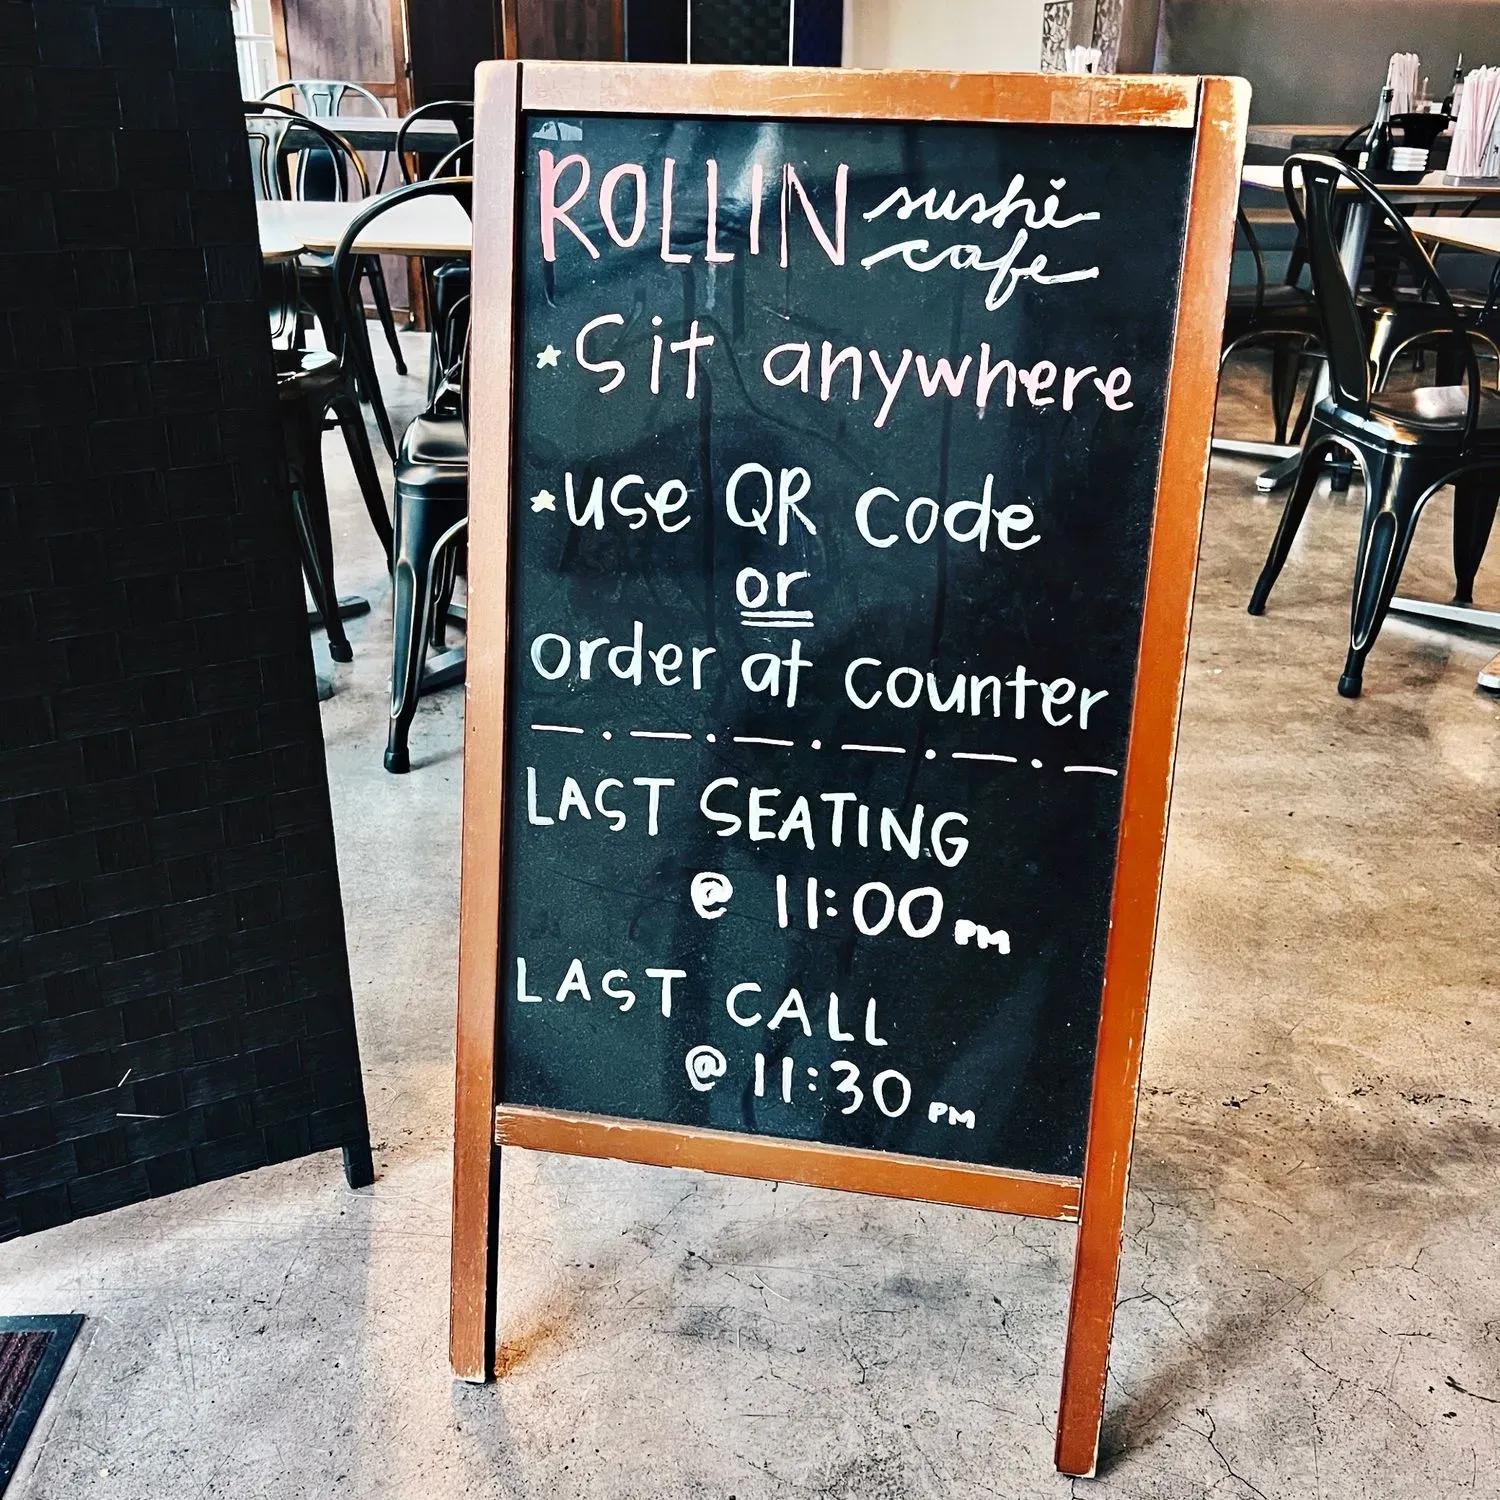 ROLLIN sushi
cafe
* Sit anywhere
* use QR code
or
order at counter
LAST SEATING
@ 11:00 PM
LAST CALL
@ 11:30 PM